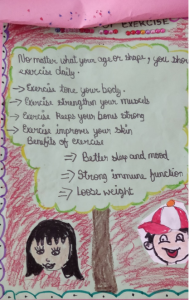 EXERCISE
No matter what your age or shape, you shou
exercise daily.
→ Exercise tone your body.
→ Exercise strengthen your muscels
→ Exercise keeps your bone strong
→ Exercise improves your skin
Benefits of exercise
⇒ Better sleep and mood
⇒ Strong immune function
⇒ Loose weight